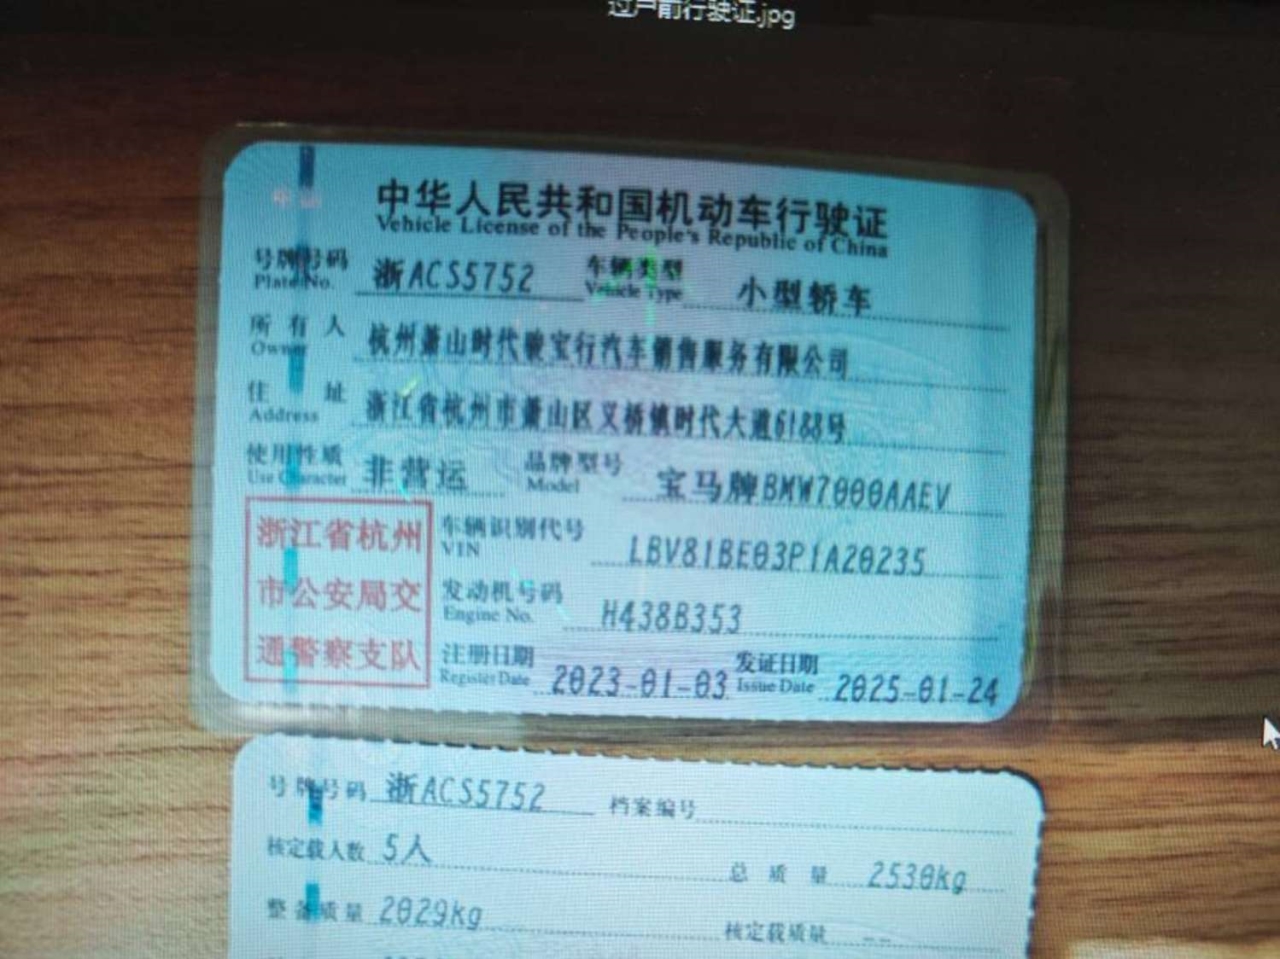 过户前行驶证.jpg
中华人民共和国机动车行驶证
Vehicle License of the People's Republic of China
号牌号码 浙ACS5752 车辆类型 小型轿车
Plate No. Vehicle Type
所有人 杭州萧山时代骏宝行汽车销售服务有限公司
Owner
住址 浙江省杭州市萧山区义桥镇时代大道6188号
Address
使用性质 非营运 品牌型号 宝马牌BMW7000AAEV
Use Character Model
浙江省杭州
市公安局交
通警察支队
车辆识别代号 LBV81BE03P1A20235
VIN
发动机号码 H438B353
Engine No.
注册日期 2023-01-03 发证日期 2025-01-24
Register Date Issue Date
号牌号码 浙ACS5752 档案编号
核定载人数 5人 总质量 2530kg
整备质量 2029kg 核定载质量 --